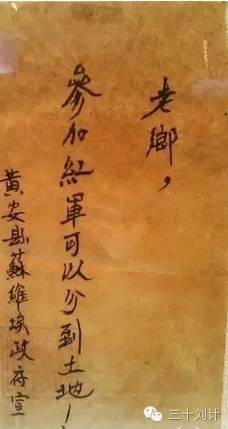 老鄉，
參加紅軍可以分到土地！
黄安县蘇維埃政府宣
三十刘计